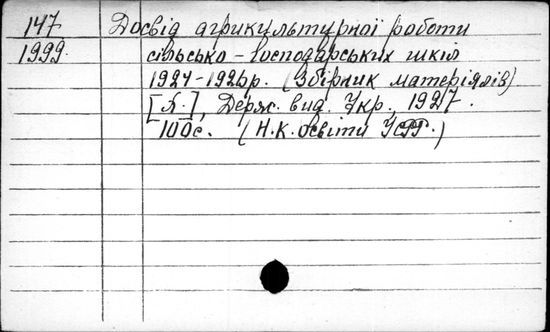 147 Досвід агрикультурної роботи
1999. сільсько-господарських шкіл
1924-1926р. (Збірник матеріялів)
[Х.], Держ. вид. Укр., 1927.
100с. (Н.К.Освіти УСРР.)